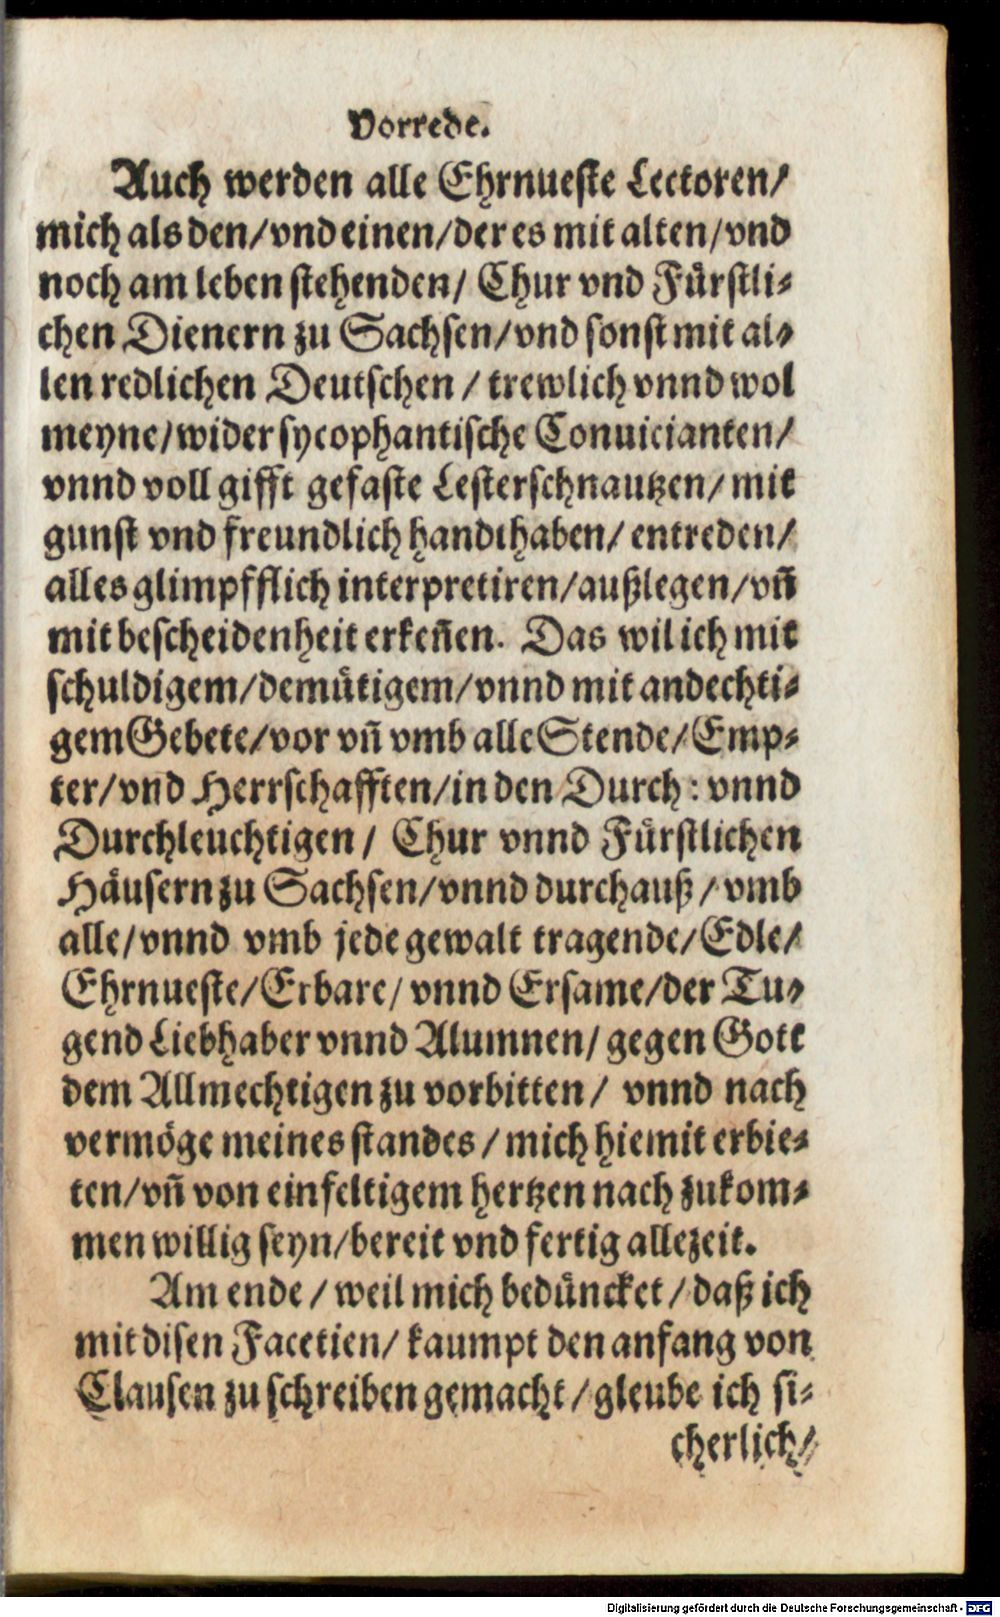 Vorrede.
Auch werden alle Ehrnueste Lectoren/
mich als den/vnd einen/der es mit alten/vnd
noch am leben stehenden/ Chur vnd Fürstli-
chen Dienern zu Sachsen/vnd sonst mit al-
len redlichen Deutschen / trewlich vnnd wol
meyne/wider sycophantische Conuicianten/
vnnd voll gifft gefaste Lesterschnautzen/ mit
gunst vnd freundlich handthaben/ entreden/
alles glimpfflich interpretiren/außlegen/vñ
mit bescheidenheit erkeñen. Das wil ich mit
schuldigem/demütigem/vnnd mit andechti-
gem Gebete/vor vñ vmb alle Stende/Emp-
ter/vnd Herrschafften/in den Durch: vnnd
Durchleuchtigen/ Chur vnnd Fürstlichen
Häusern zu Sachsen/vnnd durchauß/vmb
alle/vnnd vmb jede gewalt tragende/Edle/
Ehrnueste/Erbare/ vnnd Ersame/der Tu-
gend Liebhaber vnnd Alumnen/ gegen Gott
dem Allmechtigen zu vorbitten/ vnnd nach
vermöge meines standes / mich hiemit erbie-
ten/vñ von einfeltigem hertzen nach zukom-
men willig seyn/bereit vnd fertig allezeit.
Am ende / weil mich bedüncket / daß ich
mit disen Facetien/ kaumpt den anfang von
Clausen zu schreiben gemacht / gleube ich si-
cherlich/
Digitalisierung gefördert durch die Deutsche Forschungsgemeinschaft - DFG